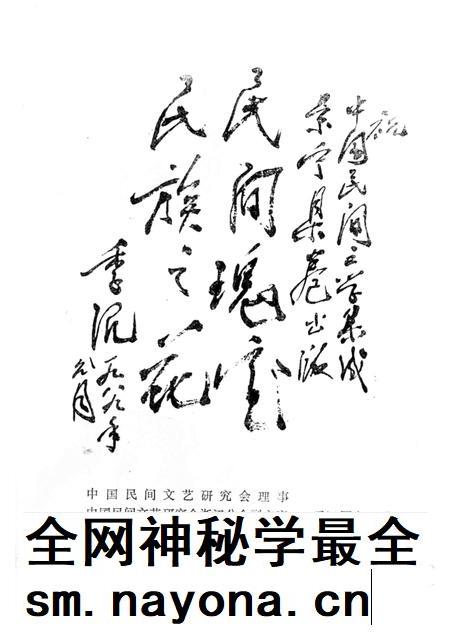 祝
中国民间文学集成
景宁县卷出版
民间瑰宝
民族之花
季沉 一九八八年
元月
中国民间文艺研究会理事
全网神秘学最全
sm.nayona.cn